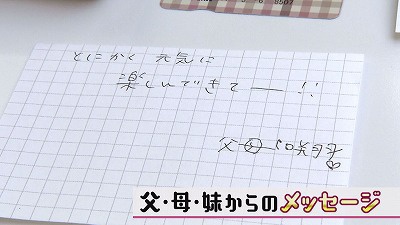 8507
とにかく 元気に
楽しんできてー!!
父 母
父・母・妹からのメッセージ